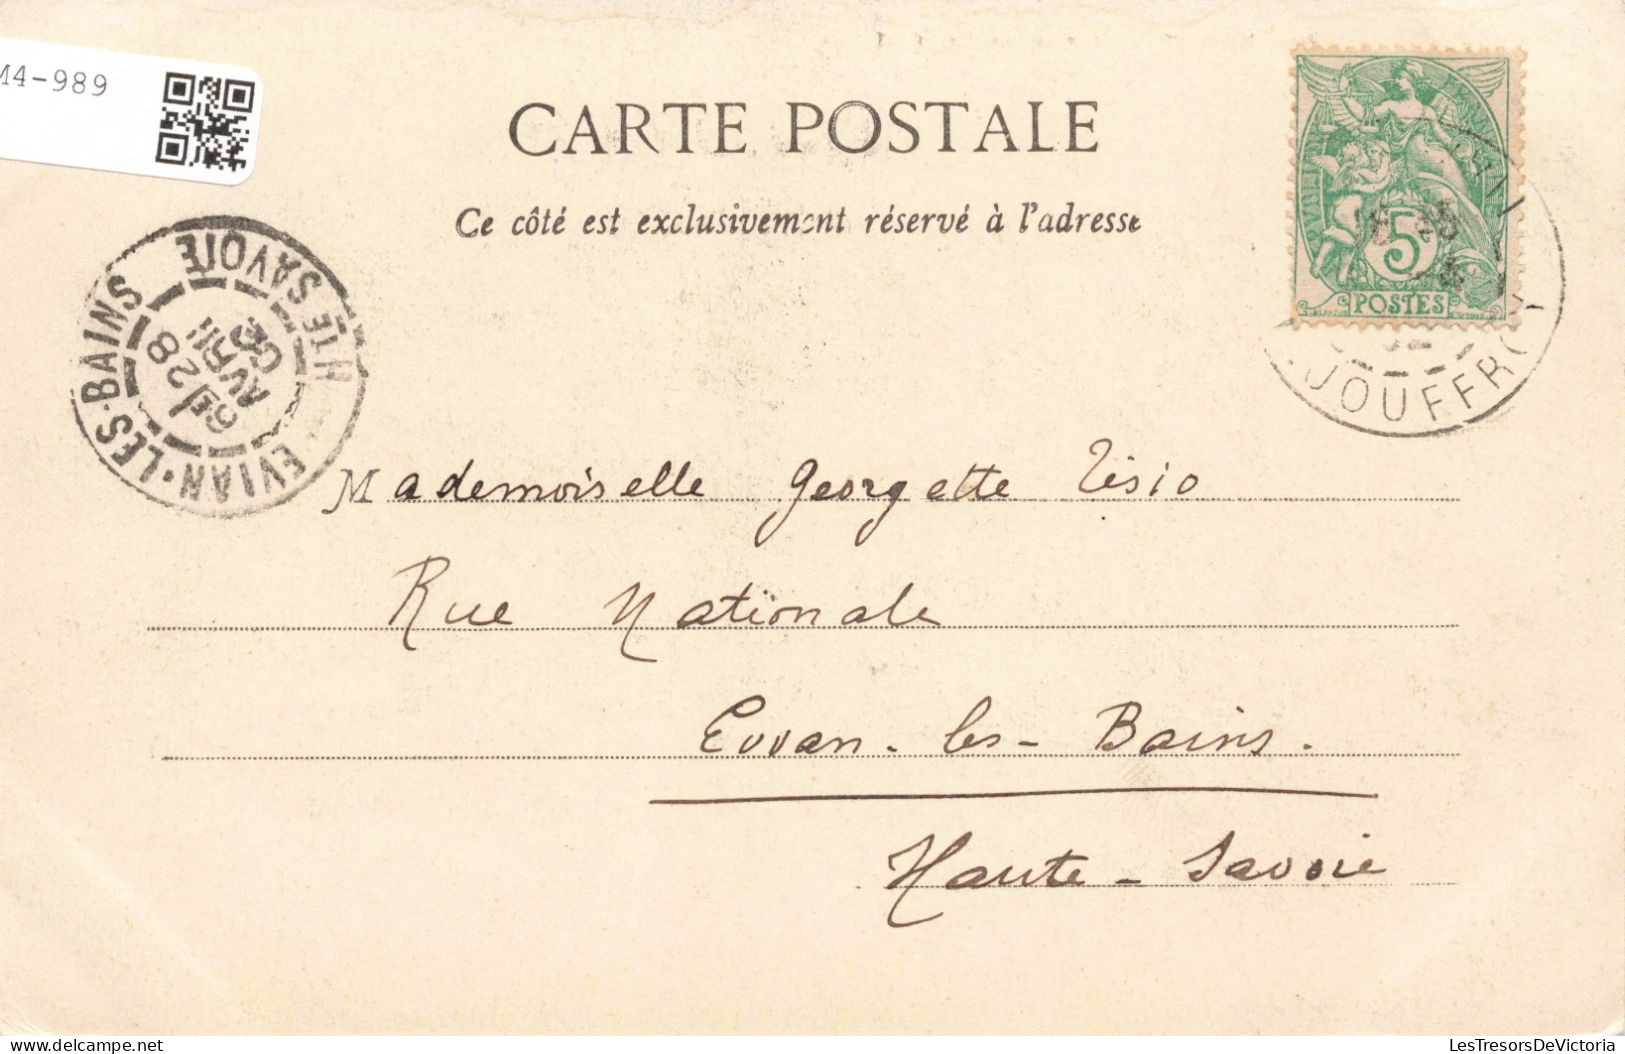 M4-989
CARTE POSTALE
Ce côté est exclusivement réservé à l'adresse
5
POSTES
JOUFFROY
EVIAN-LES-BAINS HTE SAVOIE
28
AVRIL
Mademoiselle Georgette Tésio
Rue Nationale
Evian-les-Bains.
Haute-Savoie
LesTresorsDeVictoria
LesTresorsDeVictoria